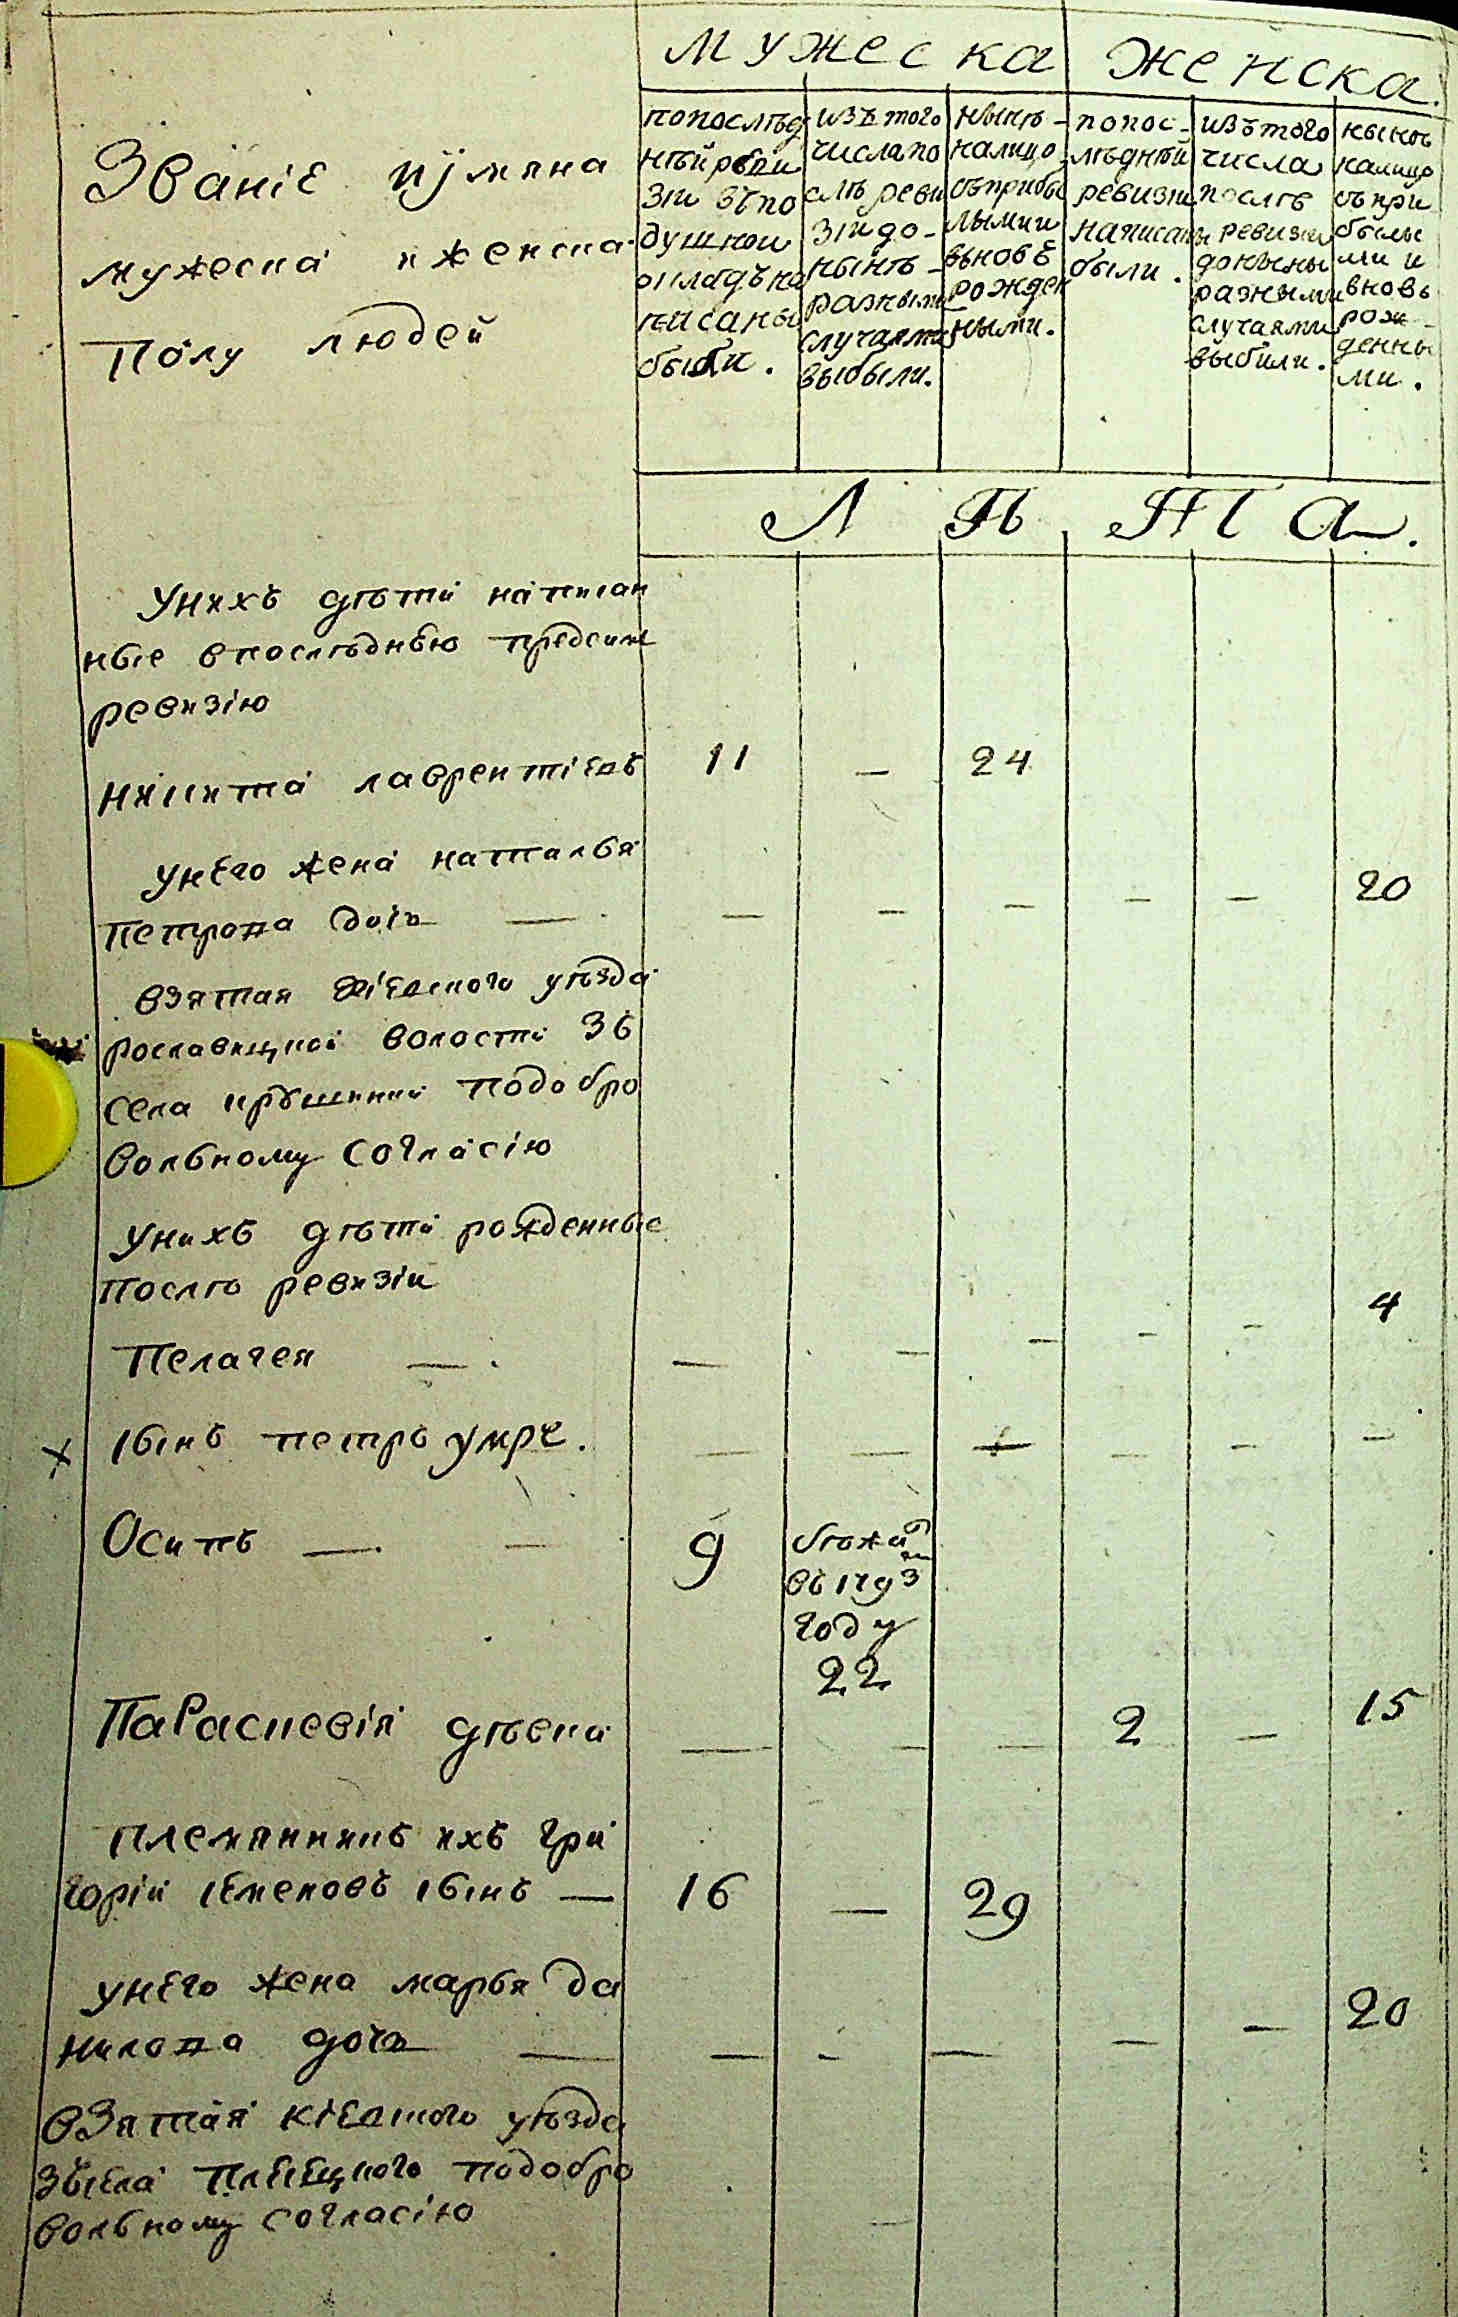 мужеска женска
Званiе иймяна
мужеска иженска
полу людей
попослѣд
нѣй реви
зiи зъпо
душнои
окладъ на
писаны
были.
изътого
числапо
слѣ реви
зiи до-
нынѣ-
разными
случаями
выбыли.
нынѣ-
налицо
съприбы
лыми и
вьновѣ
рожден
ными.
попос-
лѣднѣй
ревизiи
написаны
были.
изътого
числа
послѣ
ревизiи
донынѣ
разными
случаями
выбыли.
нынѣ
налицо
съпри
былы
ми и
вновь
рож-
денны
ми.
Лѣта.
унихъ дѣти написан
ные впослѣднюю предсим
ревизiю
никита лаврентiевъ 11 — 24
унего жена наталья
петрова дочь — — — — — — 20
взятая кiевского уѣзда
рославицкой волости зь
села крушинки подобро
вольному согласiю
унихъ дѣти рожденные
послѣ ревизiи
пелагея — — — — — — 4
х сынъ петръ умре. — — — — — —
Осипъ — — 9 бѣжал
въ 1793
году
22
Параскевiя дѣвка — — — 2 — 15
племянникъ ихъ гри
горiй семеновъ сынъ — 16 — 29
унего жена марья да
нилова дочь — — — — — — 20
взятая кiевского уѣзда
зъсела плесецкого подобро
вольному согласiю